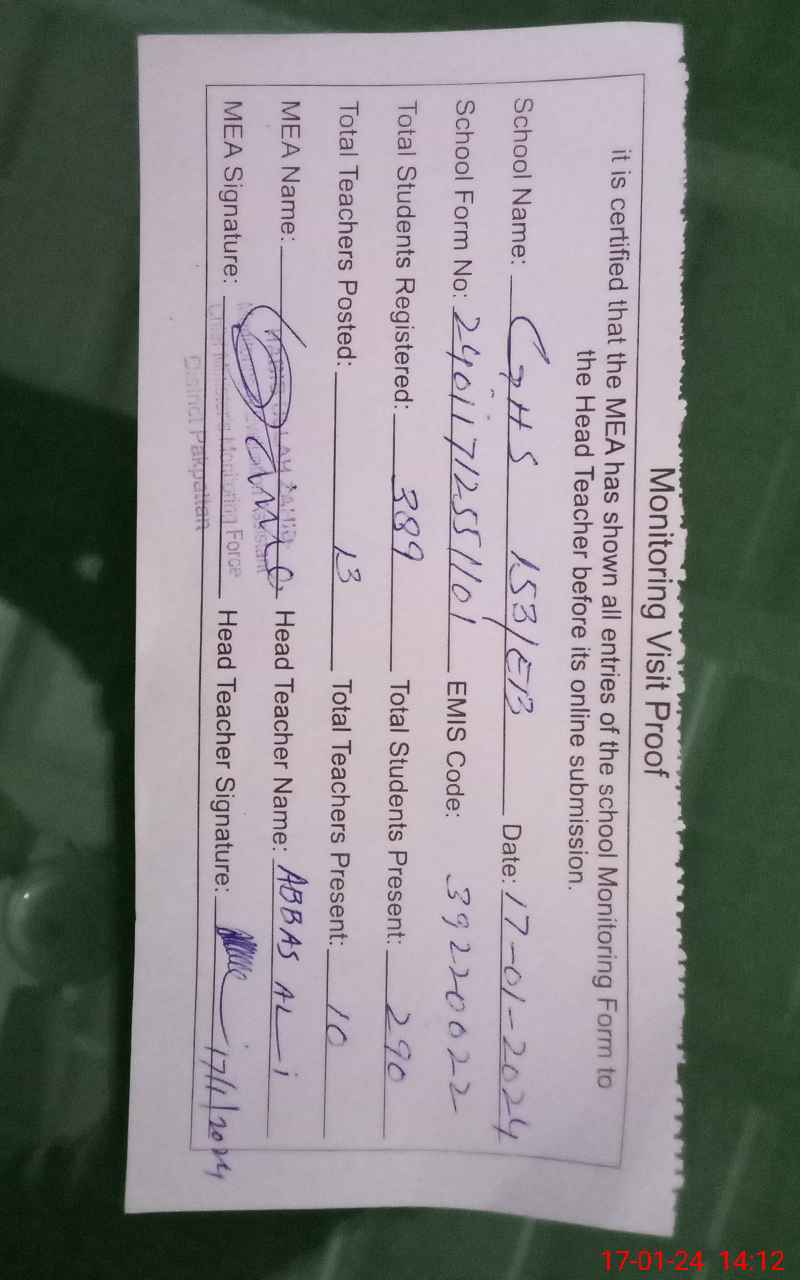 Monitoring Visit Proof
it is certified that the MEA has shown all entries of the school Monitoring Form to
the Head Teacher before its online submission.
School Name: GHS 153/EB Date: 17-01-2024
School Form No: 24011712551101 EMIS Code: 39220022
Total Students Registered: 389 Total Students Present: 290
Total Teachers Posted: 13 Total Teachers Present: 10
MEA Name: Head Teacher Name: ABBAS ALi
MEA Signature: Head Teacher Signature: 17/1/2024
Chief Minister's Monitoring Force
District Pakpattan
17-01-24 14:12